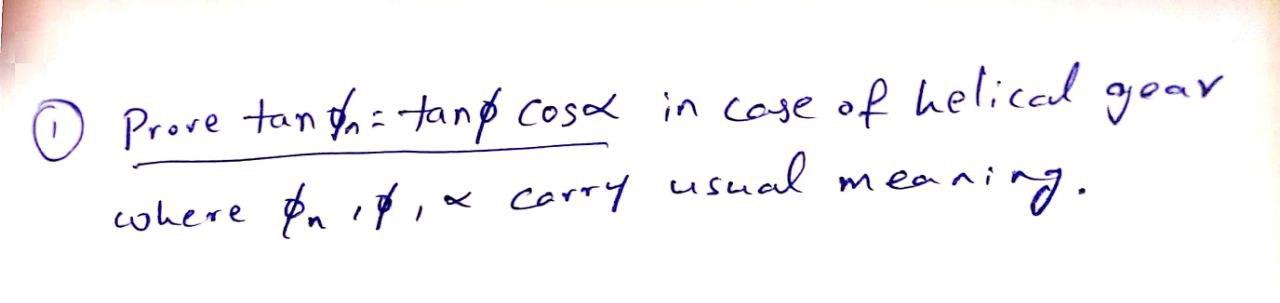 ① Prove tan ϕn = tanϕ cosα in case of helical gear
where ϕn, ϕ, α carry usual meaning.